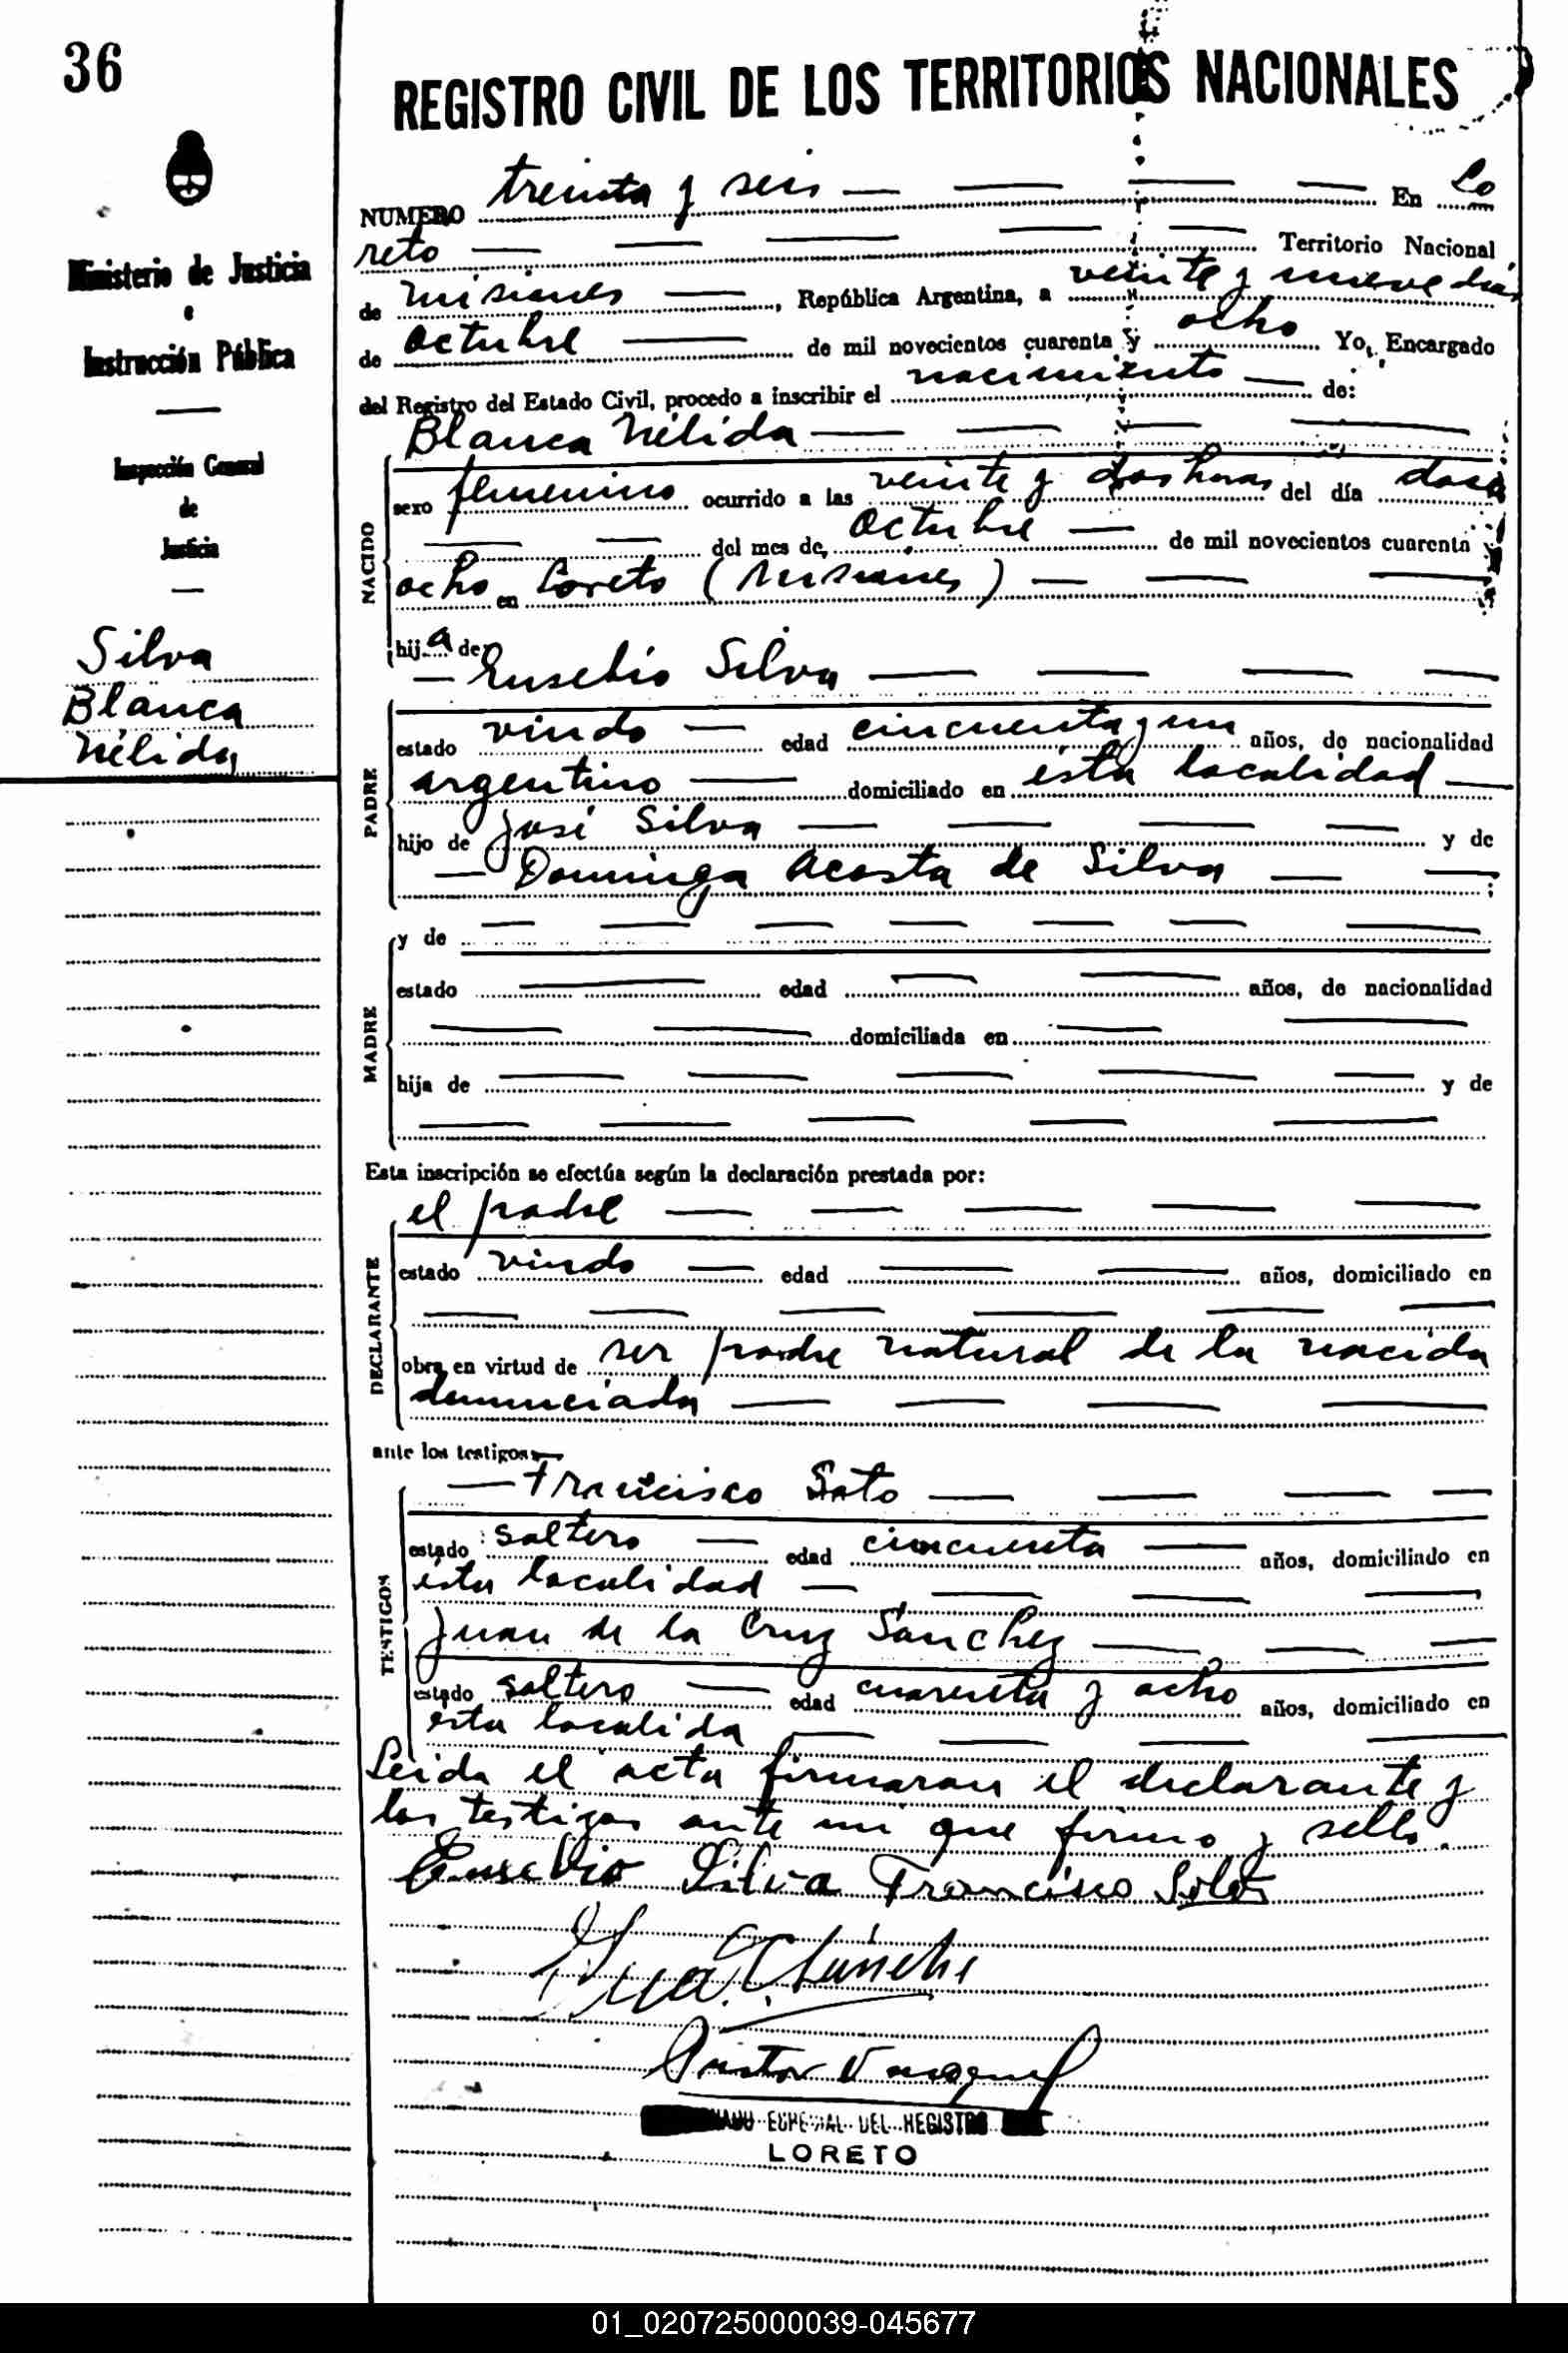 36
REGISTRO CIVIL DE LOS TERRITORIOS NACIONALES
Ministerio de Justicia
e
Instrucción Pública
Inspección General
de
Justicia
Silva
Blanca
Nélida
NUMERO treinta y seis — — — — En Lo
reto — — — — — Territorio Nacional
de Misiones —, República Argentina, a veinte y nueve días
de Octubre — de mil novecientos cuarenta y ocho Yo, Encargado
del Registro del Estado Civil, procedo a inscribir el nacimiento — de:
Blanca Nélida — — — — —
NACIDO
sexo femenino ocurrido a las veinte y dos horas del día doce
— — del mes de Octubre — de mil novecientos cuarenta y
ocho en Loreto (Misiones) — — —
hija de
— Eusebio Silva — — — —
PADRE
estado viudo — edad cincuenta y un años, de nacionalidad
argentino — domiciliado en ésta localidad —
hijo de José Silva — — — — y de
— Dominga Acosta de Silva — — ;
MADRE
y de — — — — — — —
estado — edad — — años, de nacionalidad
— — domiciliada en — —
hija de — — — — — y de
— — — — —
Esta inscripción se efectúa según la declaración prestada por:
el padre — — — — —
DECLARANTE
estado viudo — edad — — años, domiciliado en
— — — — — —
obra en virtud de ser padre natural de la nacida
denunciada — — — —
ante los testigos: —
— Francisco Soto — — — —
TESTIGOS
estado soltero — edad cincuenta — años, domiciliado en
ésta localidad — — — —
Juan de la Cruz Sanchez — — —
estado soltero — edad cuarenta y ocho años, domiciliado en
esta localida — — — —
Leida el acta firmaron el declarante y
los testigos ante mi que firmo y sello.
Eusebio Silva Francisco Soto
Juan C. Sánche
Pastor Vasquez
ESPECIAL DEL REGISTRO
LORETO
01_020725000039-045677